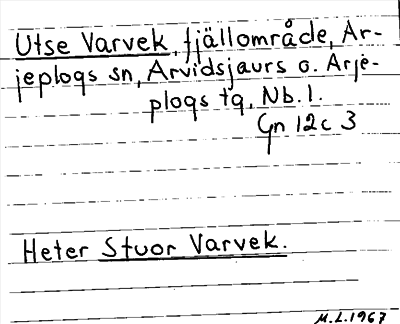 Utse Varvek, fjällområde, Ar-
jeplogs sn, Arvidsjaurs o. Arje-
plogs tg, Nb. l.
Gn 12c 3
Heter Stuor Varvek.
M.L.1967